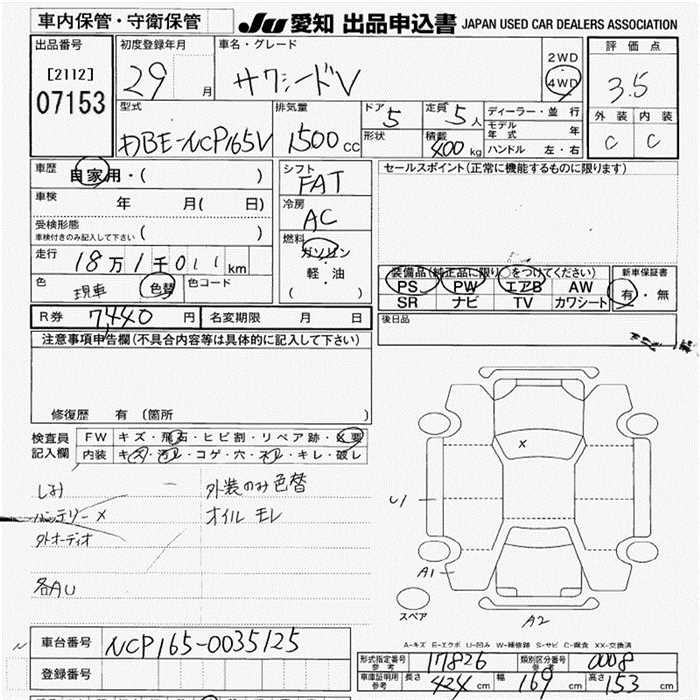 車内保管・守衛保管
JU 愛知 出品申込書 JAPAN USED CAR DEALERS ASSOCIATION
出品番号 [2112] 07153
初度登録年月 29 月
車名・グレード サクシードV
2WD・4WD
評価点 3.5
外装 C 内装 C
型式 DBE-NCP165V
排気量 1500 cc
ドア 5
形状
定員 5人
積載 400 kg
ディーラー・並行
モデル年式 年
ハンドル 左・右
車歴 自家用・( )
車検 年 月( 日)
受検形態 車検付きのみ記入して下さい ( )
走行 18万1千011 km
色 現車 色替 色コード
シフト FAT
冷房 AC
燃料 ガソリン 軽・油 ( )
セールスポイント(正常に機能するものに限ります)
装備品(純正品に限り○をつけてください)
PS PW エアB AW
SR ナビ TV カワシート
新車保証書 有・無
後日品
R券 7,440 円 名変期限 月 日
注意事項申告欄(不具合内容等は具体的に記入して下さい)
修復歴 有(箇所 )
検査員記入欄
FW キズ・飛石・ヒビ割・リペア跡・X要
内装 キズ・汚レ・コゲ・穴・スレ・キレ・破レ
しみ 外装のみ色替
バッテリー× オイルモレ
外オーディオ
各AU
X
U1
A1
A2
スペア
A-キズ E-エクボ U-凹み W-補修跡 S-サビ C-腐食 XX-交換済
車台番号 NCP165-0035125
登録番号
型式指定番号 参考 17826 類別区分番号 参考 0008
車庫証明用 参考 長さ 424 cm 幅 169 cm 高さ 153 cm